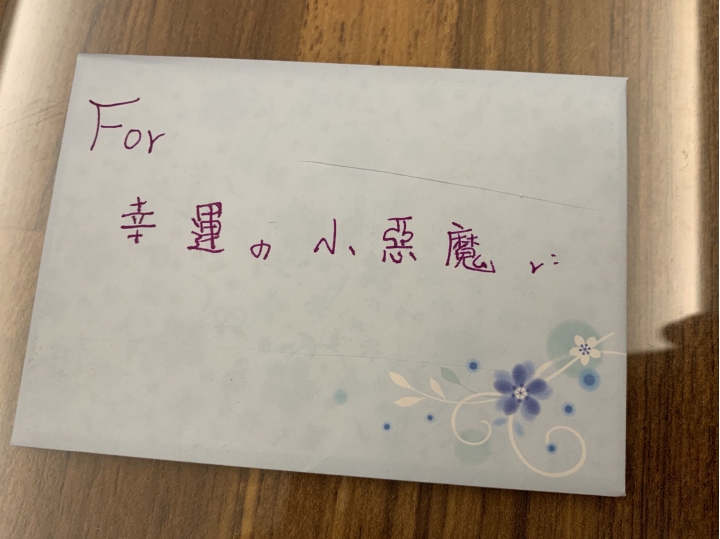 For
幸運の小惡魔